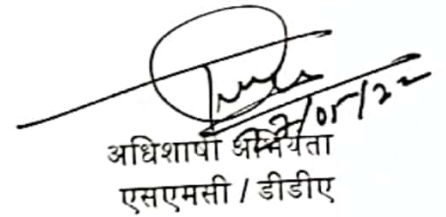 27/05/22
अधिशाषी अभियंता
एसएमसी / डीडीए